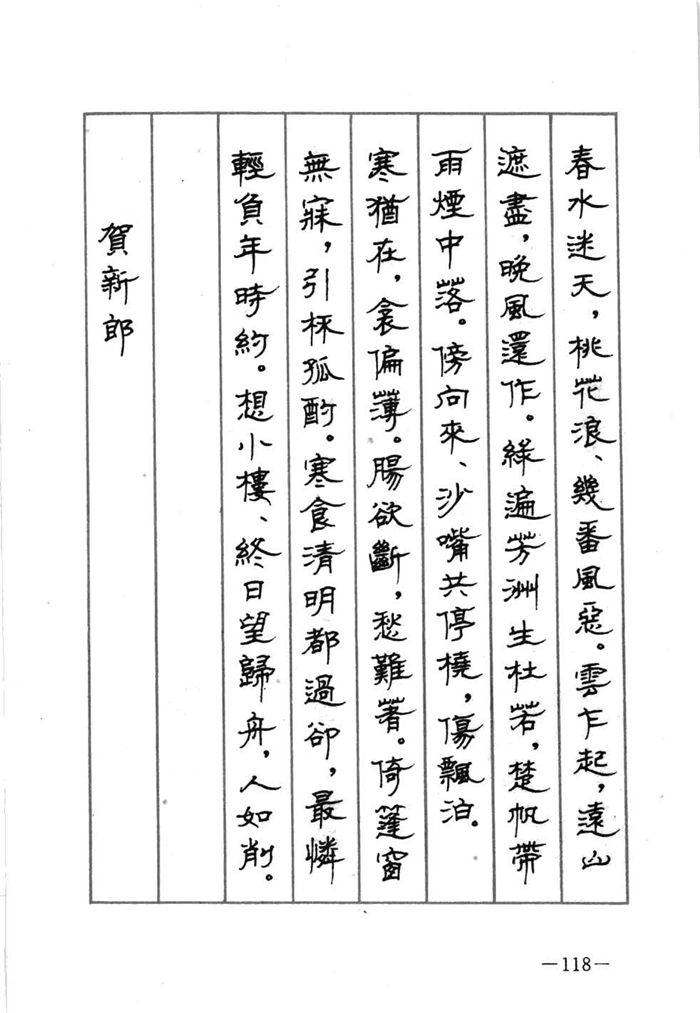 春水迷天，桃花浪、幾番風惡。雲乍起，遠山
遮盡，晚風還作。綠遍芳洲生杜若，楚帆帶
雨煙中落。傍向來、沙嘴共停橈，傷飄泊。
寒猶在，衾偏薄。腸欲斷，愁難著。倚篷窗
無寐，引杯孤酌。寒食清明都過卻，最憐
輕負年時約。想小樓、終日望歸舟，人如削。
賀新郎
—118—